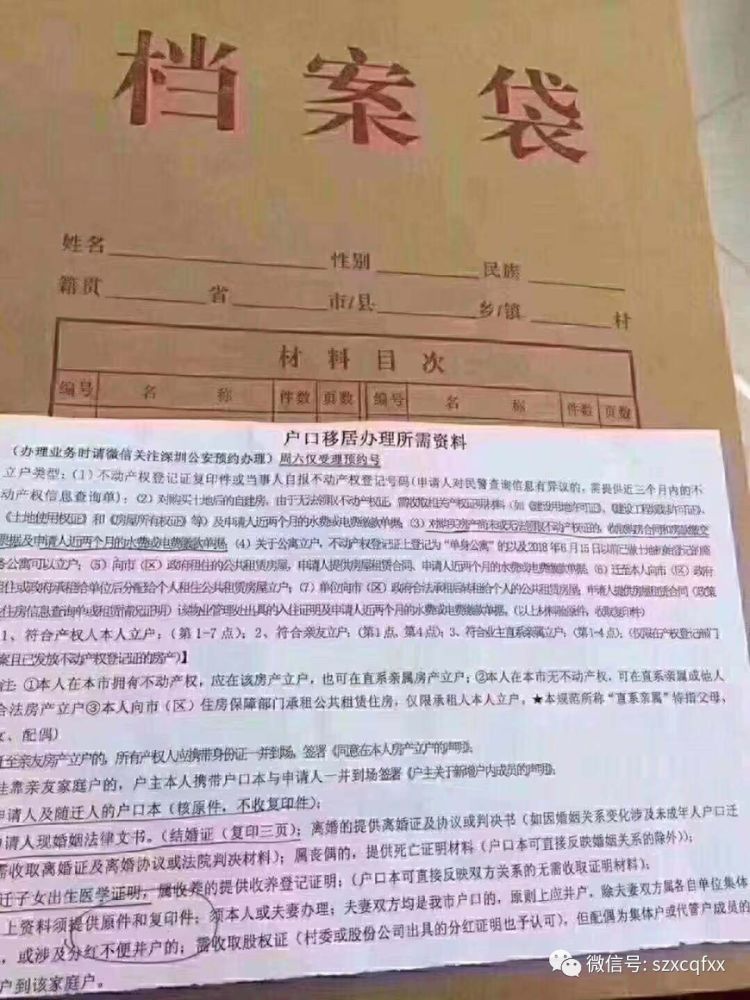 档案袋
姓名 性别 民族
籍贯 省 市/县 乡/镇 村
材料目次
编号 名 称 件数 页数 编号 名 称 件数 页数
户口移居办理所需资料
（办理业务时请微信关注深圳公安预约办理）周六仅受理预约号
立户类型：（1）不动产权登记证复印件或当事人自报不动产权登记号码（申请人对民警查询信息有异议的，需提供近三个月内的不
动产权信息查询单）；（2）对购买土地后的自建房，由于无法领取不动产权证，需收取相关产权证明材料（如《建设用地许可证》、《建设工程规划许可证》、
《土地使用权证》和《房屋所有权证》等）及申请人近两个月的水费或电费缴款单据；（3）对购买房产尚未或无法领取不动产权证的，收取购房合同和房款缴交
票据及申请人近两个月的水费或电费缴款单据；（4）关于公寓立户，不动产权登记证上登记为“单身公寓”的以及2018年6月15日以前已兼土地使用登记的商
务公寓可以立户；（5）向市（区）政府租住的公共租赁住房，申请人提供房屋租赁合同、申请人近两个月的水费或电费缴款单据；（6）迁至本人向市（区）政府
租住或政府承租给单位后分配给个人租住公共租赁房屋立户；（7）单位向市（区）政府合法承租后转租给个人的公共租赁房屋；申请人提供房屋租赁合同（政策
性住房信息查询单或租赁情况证明）该物业管理处出具的入住证明及申请人近两个月的水费或电费缴款单据。（以上材料验原件，收取复印件）
1、符合产权人本人立户：（第1-7点）；2、符合亲友立户：（第1点、第4点）；3、符合业主直系亲属立户：（第1-4点）；（仅限在产权登记部门
案且已发放不动产权登记证的房产）】
注：①本人在本市拥有不动产权，应在该房产立户，也可在直系亲属房产立户；②本人在本市无不动产权，可在直系亲属或他人
合法房产立户③本人向市（区）住房保障部门承租公共租赁住房，仅限承租人本人立户。★本规范所称“直系亲属”特指父母、
女、配偶）
迁至亲友房产立户的，所有产权人应携带身份证一并到场，签署《同意在本人房产立户的声明》；
挂靠亲友家庭户的，户主本人携带户口本与申请人一并到场签署《户主关于新增户内成员的声明》；
申请人及随迁人的户口本（核原件，不收复印件）；
申请人现婚姻法律文书。（结婚证（复印三页）；离婚的提供离婚证及协议或判决书（如因婚姻关系变化涉及未成年人户口迁
需收取离婚证及离婚协议或法院判决材料）；属丧偶的，提供死亡证明材料（户口本可直接反映婚姻关系的除外））；
迁子女出生医学证明，属收养的提供收养登记证明；（户口本可直接反映双方关系的无需收取证明材料）；
上资料须提供原件和复印件；须本人或夫妻办理；夫妻双方均是我市户口的，原则上应并户。除夫妻双方属各自单位集体
，或涉及分红不便并户的；需收取股权证（村委或股份公司出具的分红证明也予认可），但配偶为集体户或代管户成员的
户到该家庭户。
微信号: szxcqfxx